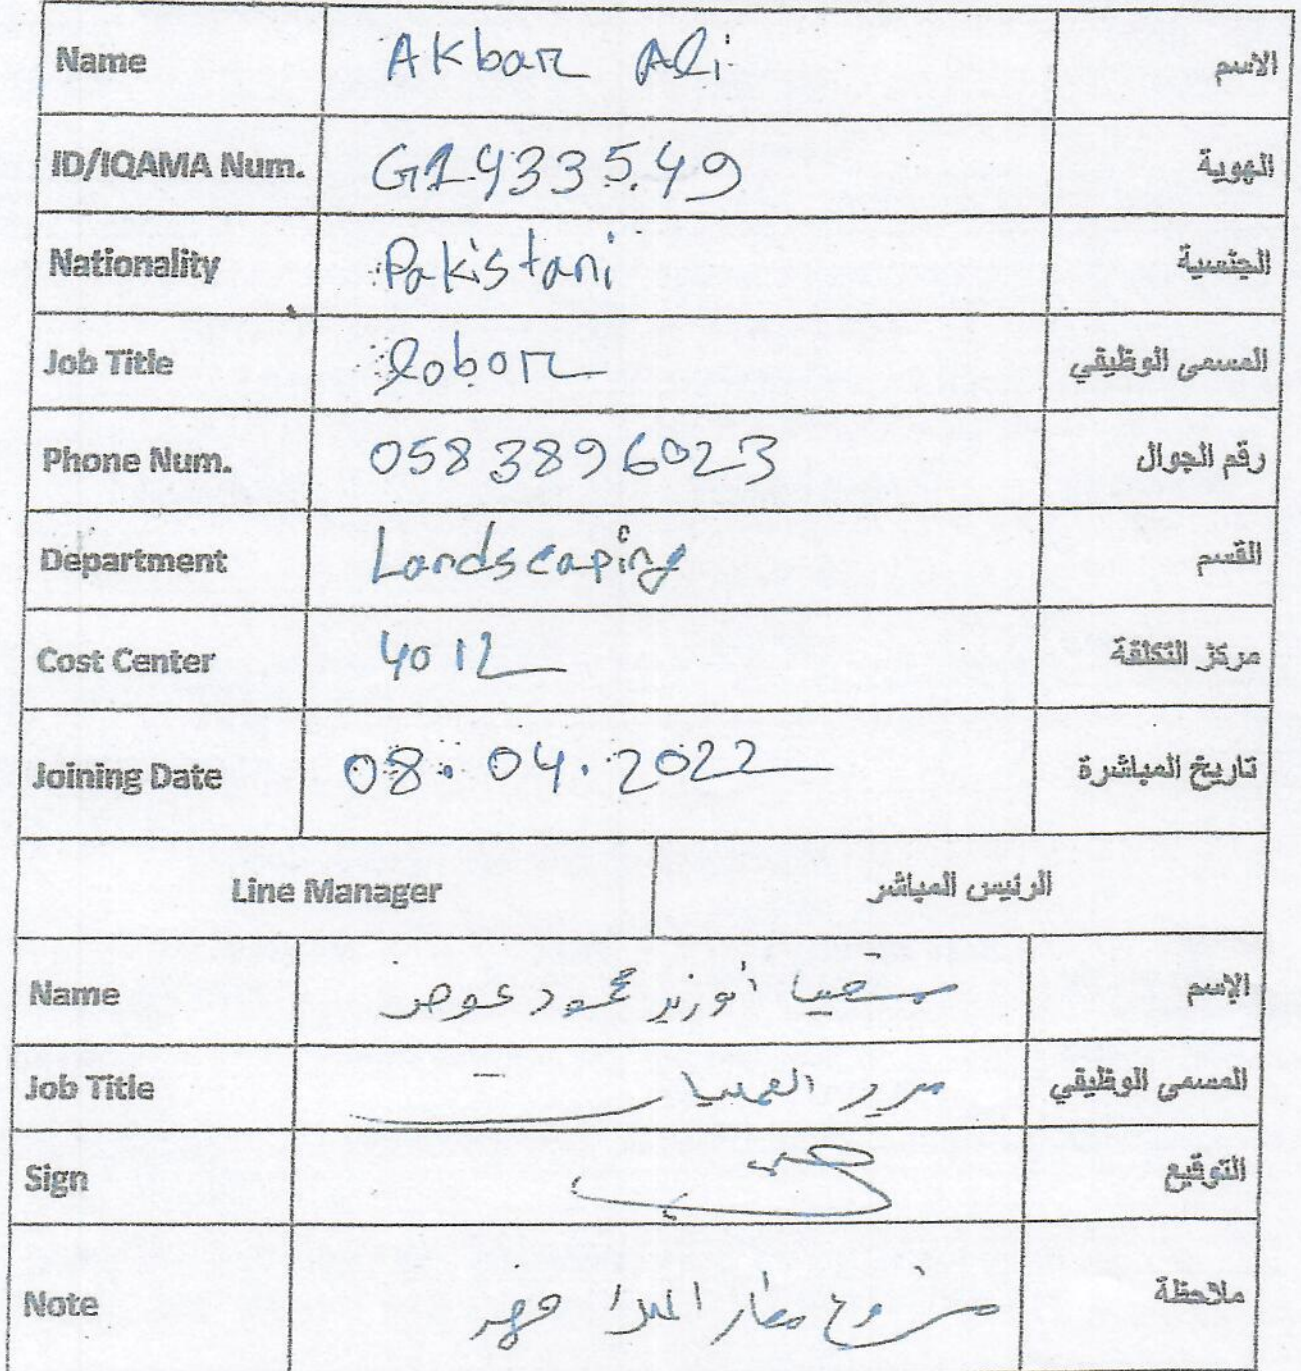 Name Akbar Ali الاسم
ID/IQAMA Num. G1433549 الهوية
Nationality Pakistani الجنسية
Job Title lobor المسمى الوظيفي
Phone Num. 0583896023 رقم الجوال
Department Landscaping القسم
Cost Center 4012 مركز التكلفة
Joining Date 08.04.2022 تاريخ المباشرة
Line Manager الرئيس المباشر
Name محمود عوض الإسم
Job Title مدير العمليات المسمى الوظيفي
Sign التوقيع
Note مشروع مطار ملاحظة